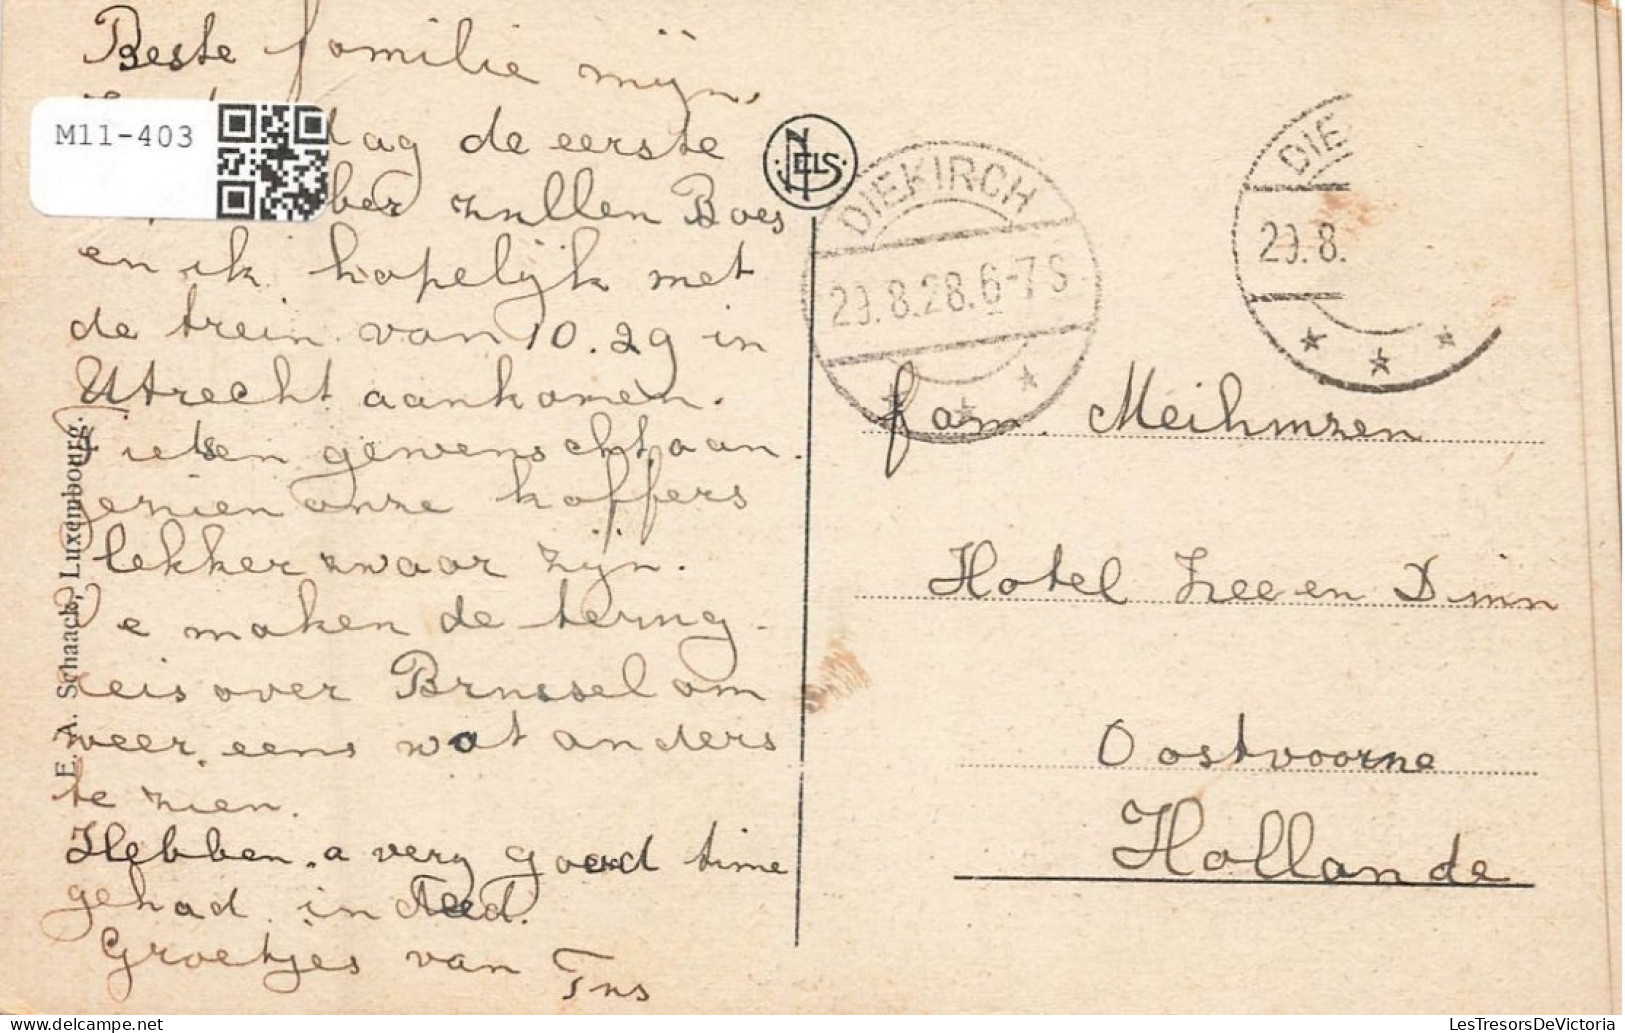 Beste familie mijn,
M11-403
dag de eerste
ber zullen Boes
en ik hopelijk met
de trein van 10.29 in
Utrecht aankomen.
Fietsen gewenscht, aan
gezien onze koffers
lekker zwaar zijn.
We maken de terug-
reis over Brussel om
weer eens wat anders
te zien.
Hebben a very good time
gehad indeed.
Groetjes van
Tns
E. A. Schaack, Luxembourg.
NELS
DIEKIRCH
29.8.28.6-7S
DIE
29.8.
fam. Meihuizen
Hotel Zee en Duin
Oostvoorne
Hollande
LesTresorsDeVictoria